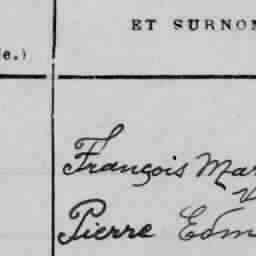 ET SURNOM
le.)
François Mar
Pierre Edm